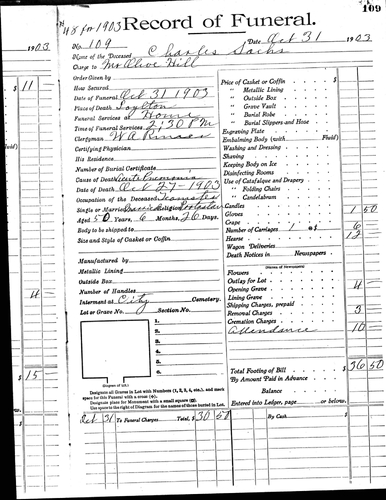 109
48 for 1903
Record of Funeral.
No. 109
Date Oct 31 1903
Name of the Deceased Charles Sachs
Charge to Mr Olive Hill
Order Given by
How Secured
Date of Funeral Oct 31 1903
Place of Death
Funeral Services at Home
Time of Funeral Services 2:30 PM
Clergyman W A
Certifying Physician
His Residence
Number of Burial Certificate
Cause of Death Acute Pneumonia
Date of Death Oct 27 - 1903
Occupation of the Deceased Teamster
Single or Married Religion
Aged 50 Years, 6 Months, 26 Days.
Body to be shipped to
Size and Style of Casket or Coffin
Manufactured by
Metallic Lining
Outside Box
Number of Handles
Interment at City Cemetery.
Lot or Grave No. Section No.
1.
2.
3.
4.
5.
6.
(Diagram of Lot.)
Designate all Graves in Lot with Numbers (1, 2, 3, etc.), and mark space for this Funeral with a cross (+).
Designate place for Monument with a small square (□).
Use space to right of Diagram for the names of those buried in Lot.
Price of Casket or Coffin $
" Metallic Lining
" Outside Box
" Grave Vault
" Burial Robe
" Burial Slippers and Hose
Engraving Plate
Embalming Body (with Fluid)
Washing and Dressing
Shaving
Keeping Body on Ice
Disinfecting Rooms
Use of Catafalque and Drapery
" Folding Chairs
" Candelabrum
Candles
Gloves 1 50
Crape
Number of Carriages 1 @ $ 6
Hearse 12
Wagon Deliveries
Death Notices in Newspapers
Flowers
Outlay for Lot 4
Opening Grave
Lining Grave
Shipping Charges, prepaid
Removal Charges 3
Cremation Charges
Attendance 10
Total Footing of Bill $ 36 50
By Amount Paid in Advance
Balance
Entered into Ledger, page or below.
Oct 31 To Funeral Charges Total, $ 30 50
By Cash $
1903
$ 11
Fluid)
4
$ 15